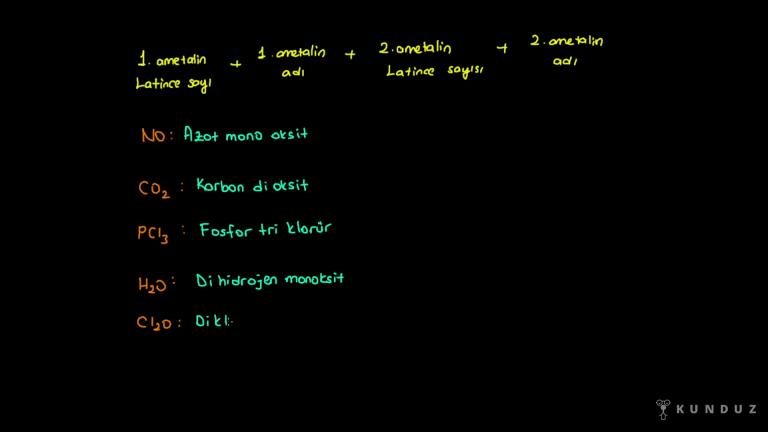 1. ametalin + 1. ametalin + 2. ametalin + 2. ametalin
Latince sayı adı Latince sayısı adı
NO : Azot mono oksit
CO₂ : Karbon di oksit
PCl₃ : Fosfor tri klorür
H₂O : Di hidrojen monoksit
Cl₂O : Dikl
KUNDUZ